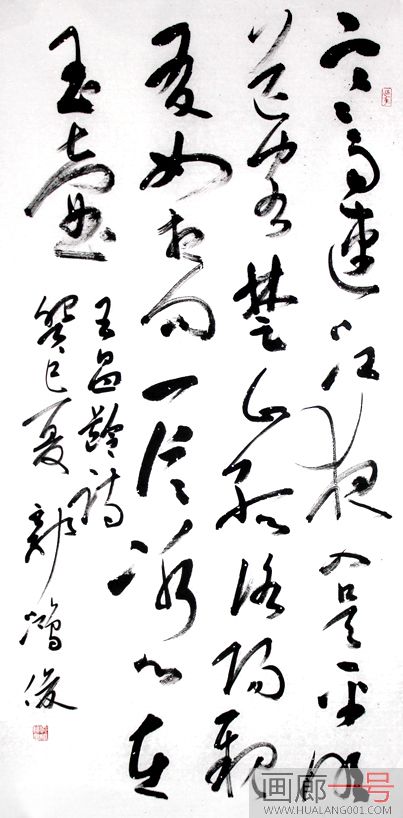 寒雨連江夜入吳平明
送客楚山孤洛陽親
友如相問一片冰心在
玉壺
王昌齡詩
癸巳夏 鴻俊
画廊一号
WWW.HUALANG001.COM